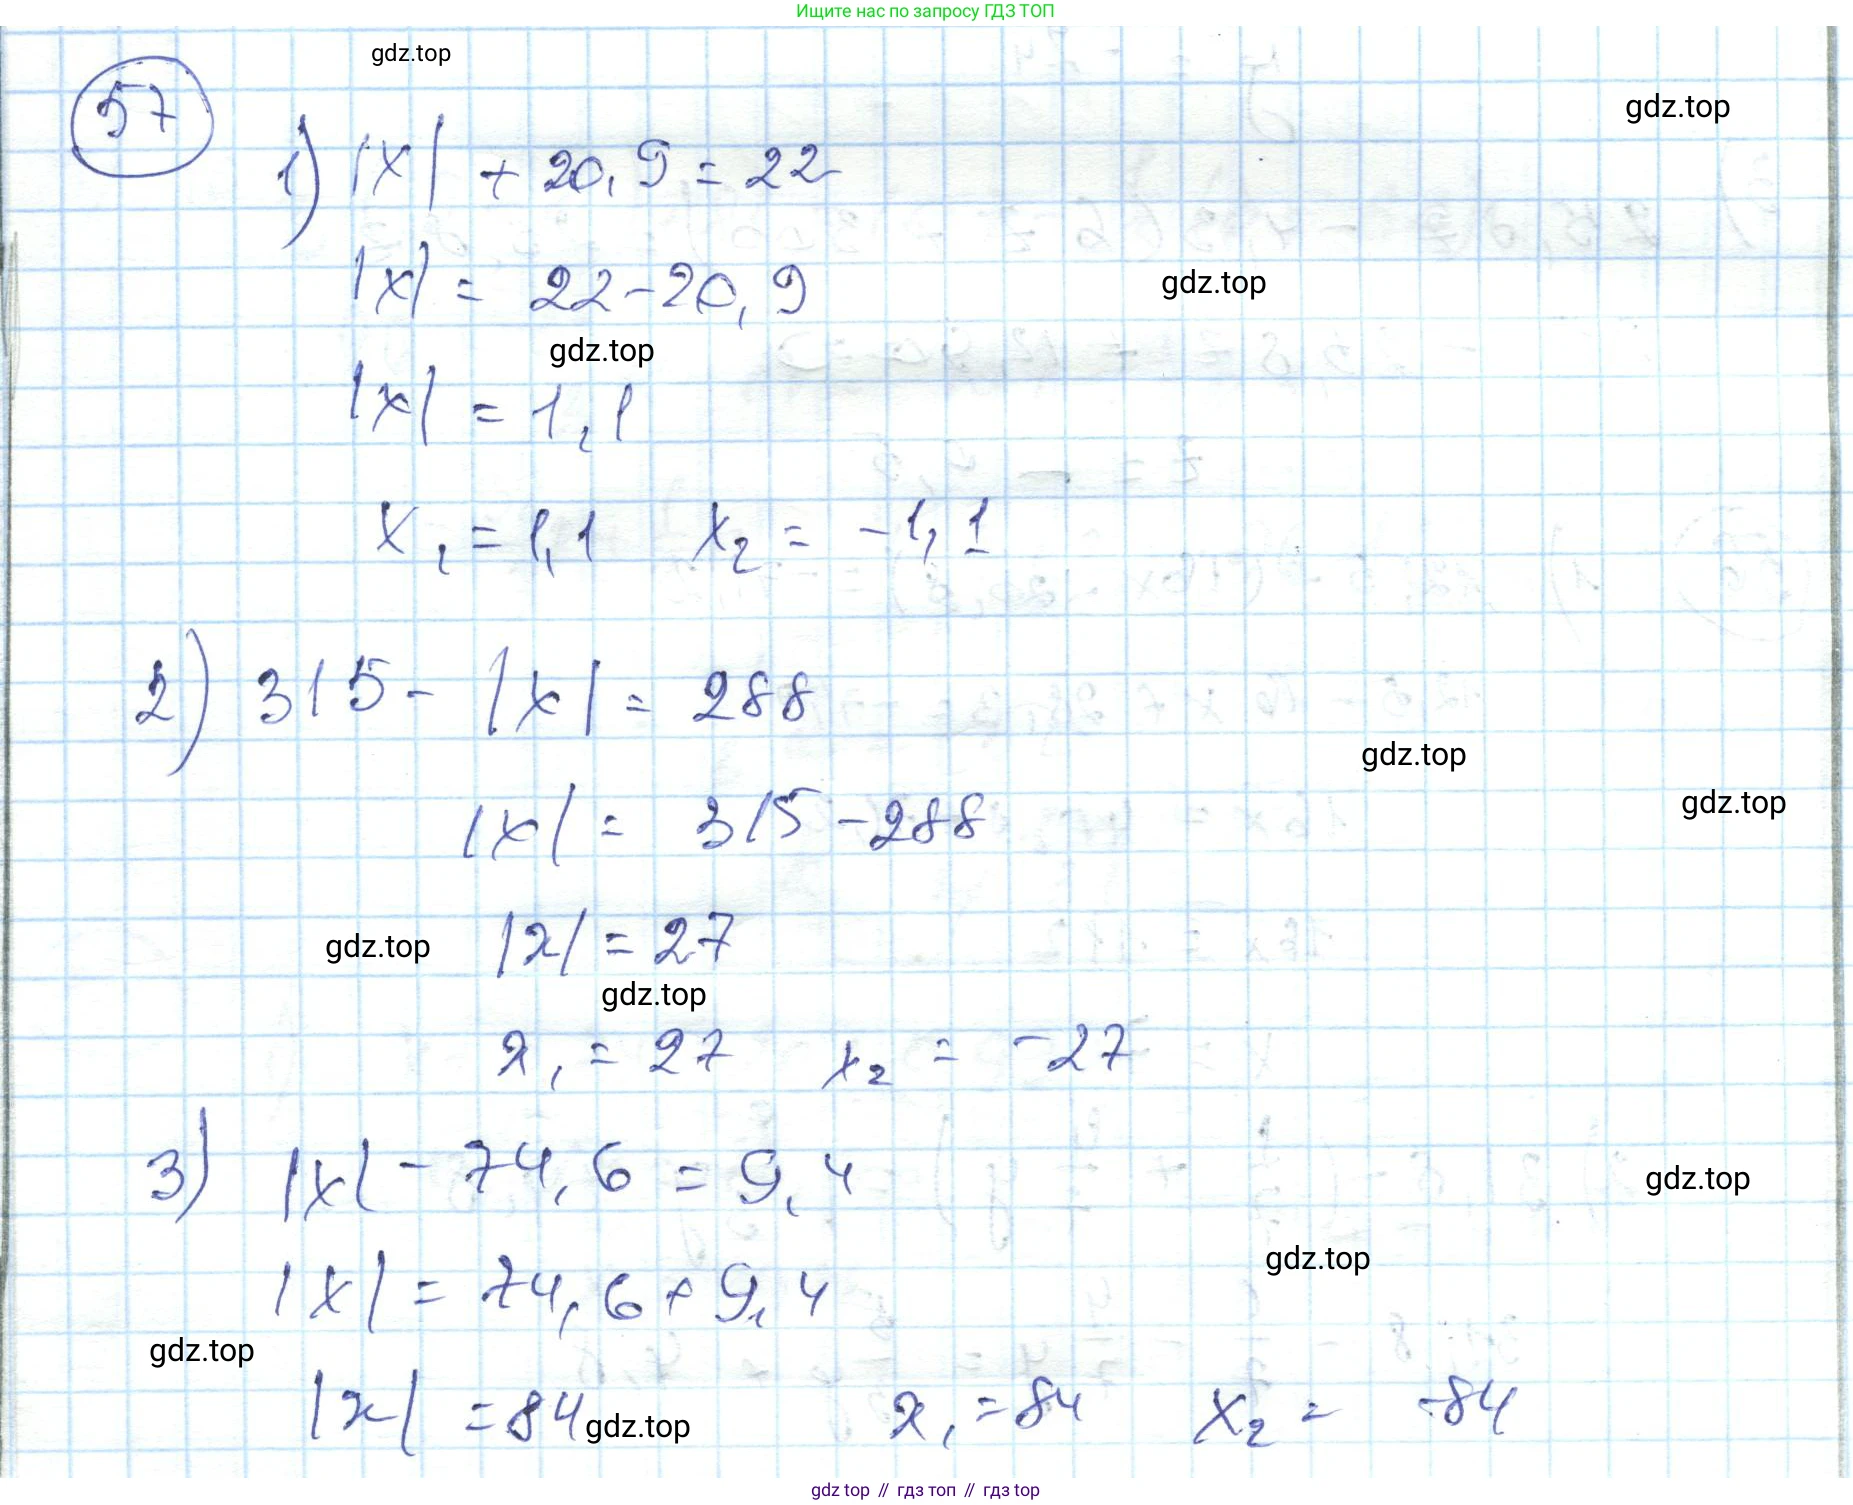 Ищите нас по запросу ГДЗ ТОП
57
gdz.top
gdz.top
1) |x| + 20,9 = 22
|x| = 22-20,9
gdz.top
gdz.top
|x| = 1,1
x₁ = 1,1 x₂ = -1,1
2) 315 - |x| = 288
gdz.top
|x| = 315-288
gdz.top
|x| = 27
gdz.top
gdz.top
x₁ = 27 x₂ = -27
3) |x| - 74,6 = 9,4
gdz.top
gdz.top
|x| = 74,6 + 9,4
gdz.top
|x| = 84 x₁ = 84 x₂ = -84
gdz.top
gdz top // гдз топ // gdz top